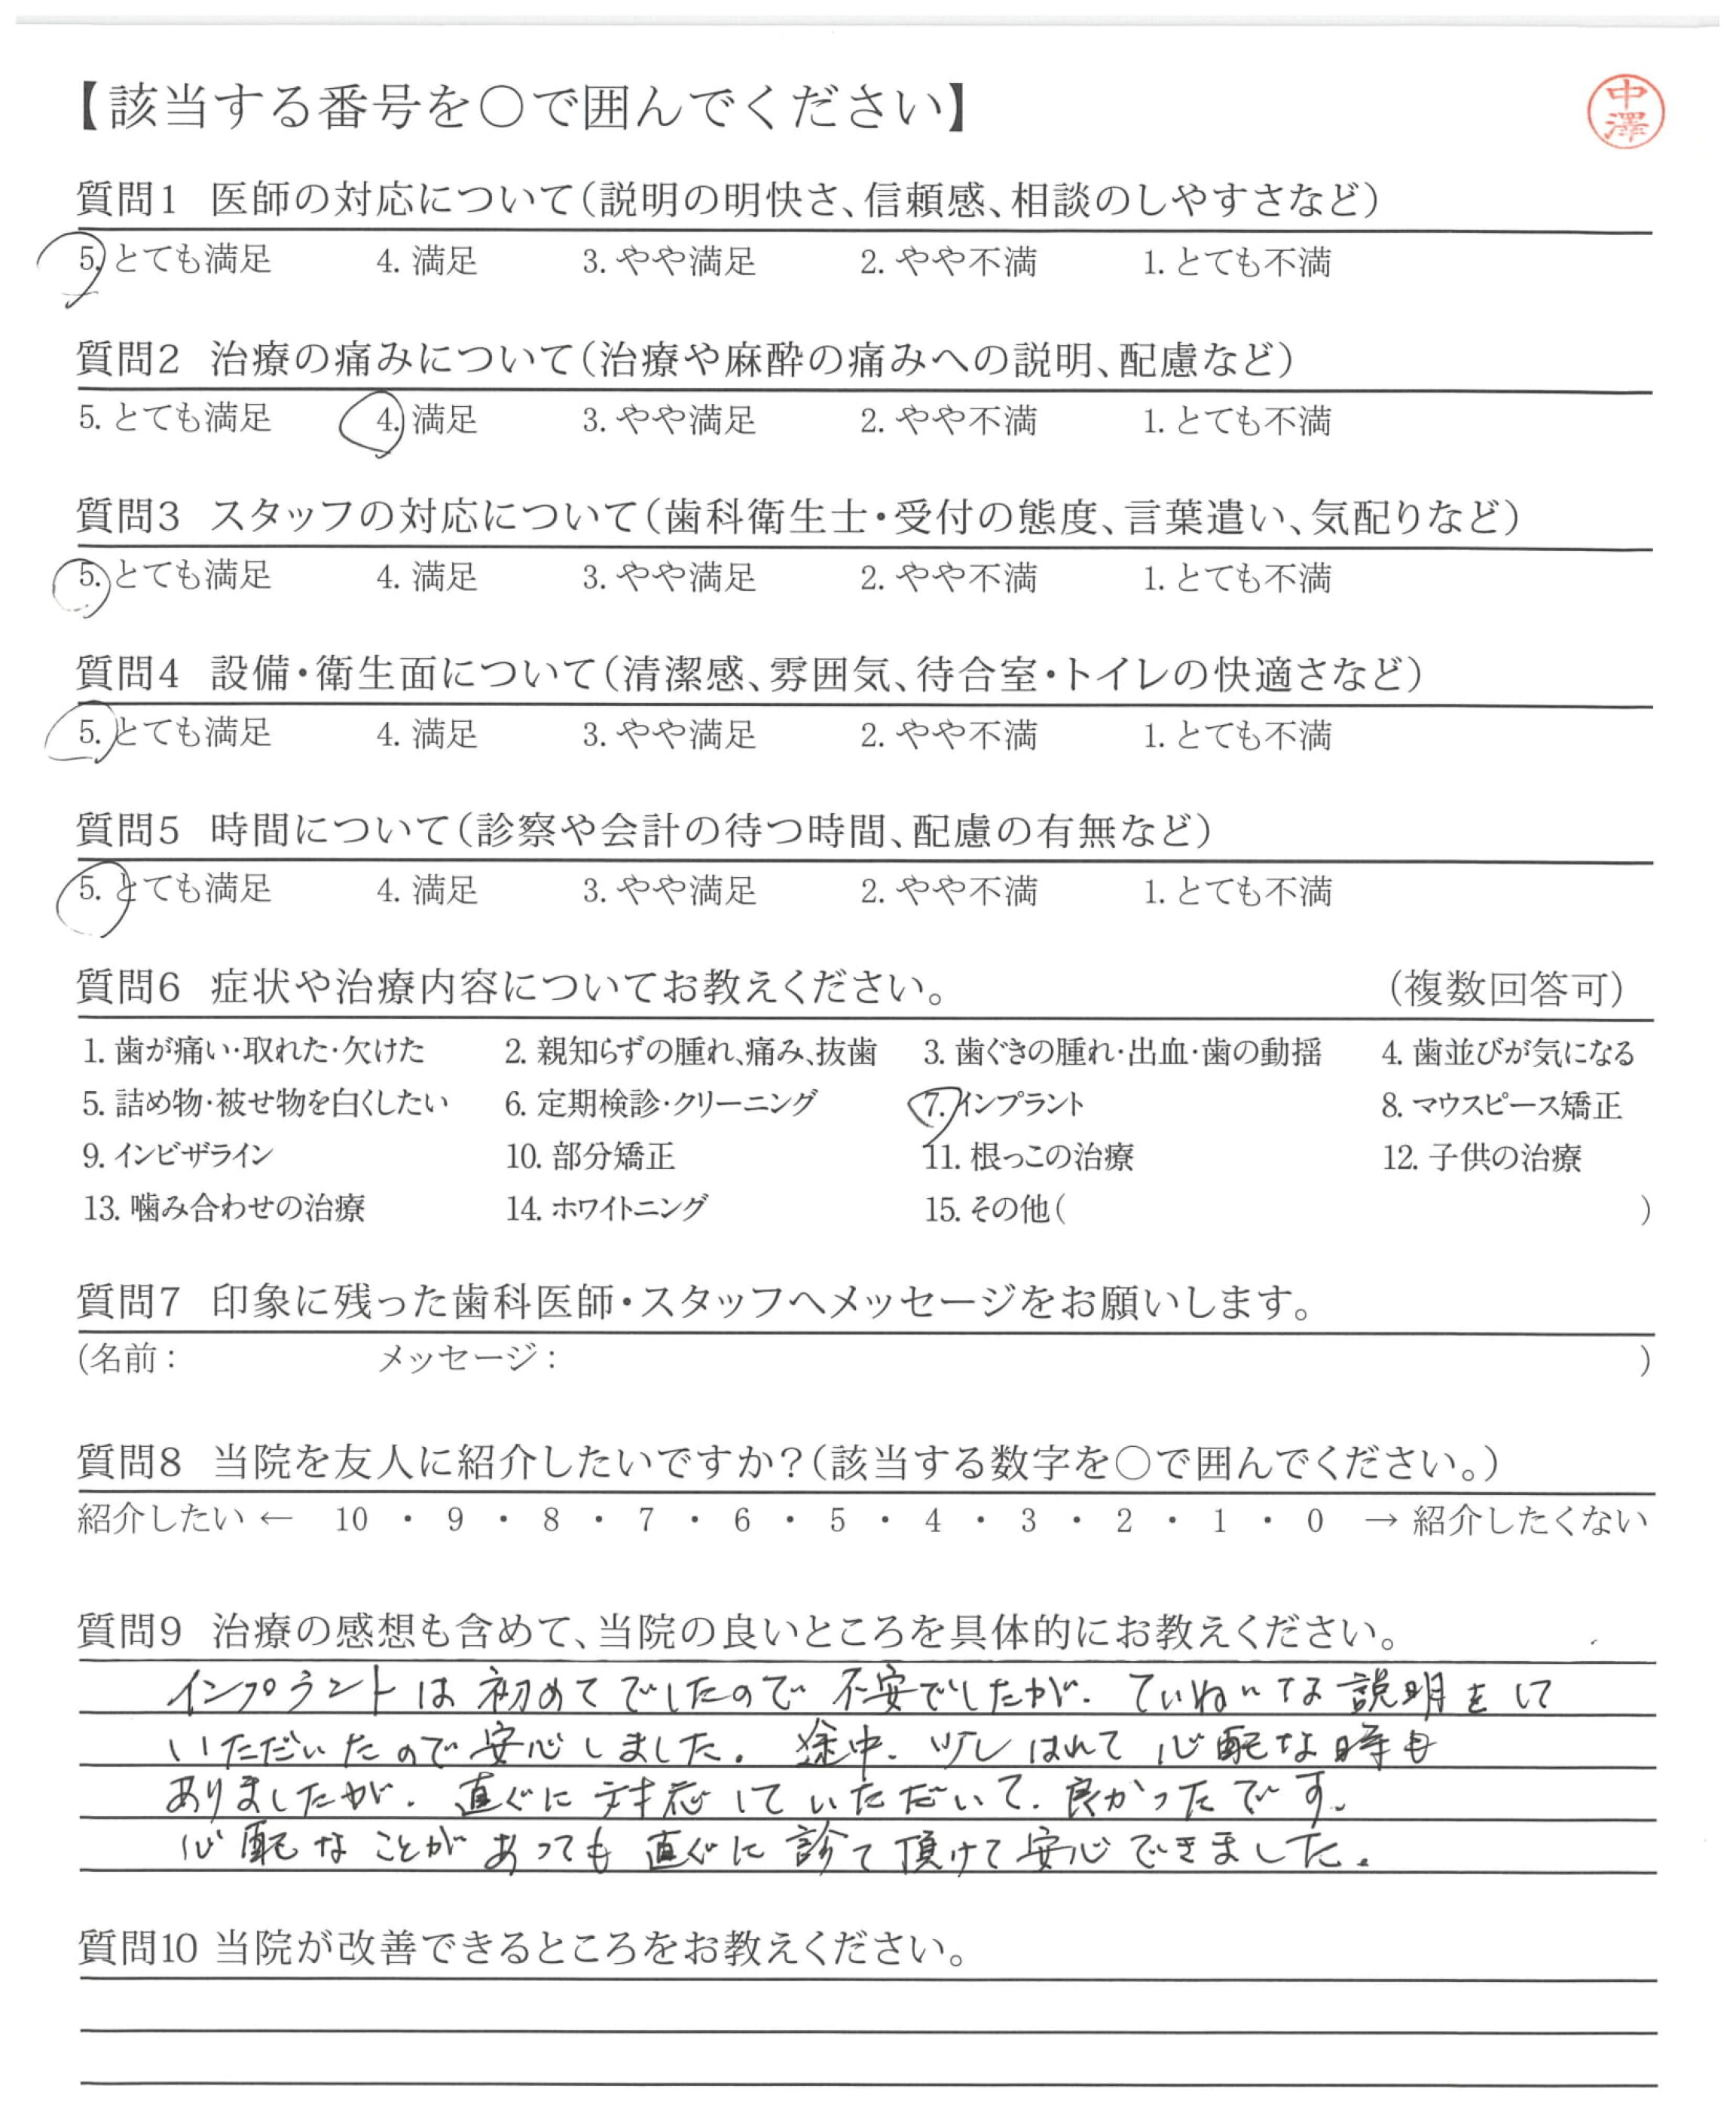 【該当する番号を○で囲んでください】
中澤
質問1 医師の対応について(説明の明快さ、信頼感、相談のしやすさなど)
5. とても満足 4. 満足 3. やや満足 2. やや不満 1. とても不満
質問2 治療の痛みについて(治療や麻酔の痛みへの説明、配慮など)
5. とても満足 4. 満足 3. やや満足 2. やや不満 1. とても不満
質問3 スタッフの対応について(歯科衛生士・受付の態度、言葉遣い、気配りなど)
5. とても満足 4. 満足 3. やや満足 2. やや不満 1. とても不満
質問4 設備・衛生面について(清潔感、雰囲気、待合室・トイレの快適さなど)
5. とても満足 4. 満足 3. やや満足 2. やや不満 1. とても不満
質問5 時間について(診察や会計の待つ時間、配慮の有無など)
5. とても満足 4. 満足 3. やや満足 2. やや不満 1. とても不満
質問6 症状や治療内容についてお教えください。 (複数回答可)
1. 歯が痛い・取れた・欠けた 2. 親知らずの腫れ、痛み、抜歯 3. 歯ぐきの腫れ・出血・歯の動揺 4. 歯並びが気になる
5. 詰め物・被せ物を白くしたい 6. 定期検診・クリーニング 7. インプラント 8. マウスピース矯正
9. インビザライン 10. 部分矯正 11. 根っこの治療 12. 子供の治療
13. 噛み合わせの治療 14. ホワイトニング 15. その他( )
質問7 印象に残った歯科医師・スタッフへメッセージをお願いします。
(名前: メッセージ: )
質問8 当院を友人に紹介したいですか?(該当する数字を○で囲んでください。)
紹介したい ← 10 ・ 9 ・ 8 ・ 7 ・ 6 ・ 5 ・ 4 ・ 3 ・ 2 ・ 1 ・ 0 → 紹介したくない
質問9 治療の感想も含めて、当院の良いところを具体的にお教えください。
インプラントは初めてでしたので不安でしたが、ていねいな説明をして
いただいたので安心しました。途中、少しはれて心配な時も
ありましたが、直ぐに対応していただいて、良かったです。
心配なことがあっても直ぐに診て頂けて安心できました。
質問10 当院が改善できるところをお教えください。